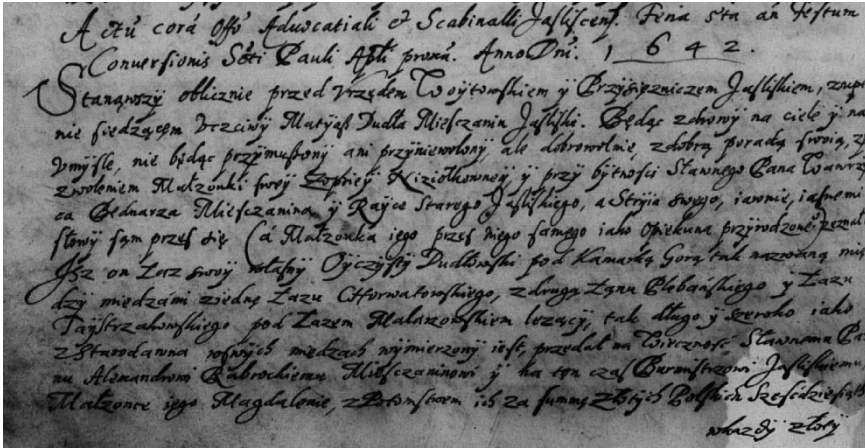 Actũ corã Offo Advocatiali et Scabinalli Jasliscens. Feria 5ta an Festum
Conversionis Scti Pauli Apli proxa. Anno Dni. 1642.
Stanąwszy oblicznie przed Vrzędem Woytowskiem y Przysiężniczem Jasliskiem, zupeł
nie siedzącem Vczciwy Matyasz Dudła Miesczanin Jasliski. Będąc zdrowy na ciele y na
Vmysle, nie będąc przymuszony ani przyniewolony, ale dobrowolnie, z dobrą poradą swoią, z
zwoleniem Małzonki swey Zophiey Kiziołkowney, y przy bytnosci Sławnego Pana Wawrzy
ca Bednarza Miesczanina y Rayce Starego Jasliskiego, a Stryia swego, iawnie, iasnemi
słowy sąm przes się (a Małzonka iego przes niego samego iako opiekuna przyrodzone) zeznał
Jsz on Łaz swoy własny Oyczysty Dudłowski pod Kamarką Gorą tak nazwaną mię
dzy miedzami z iednę Łazu Chorwatowskiego, z drugą Łanu Plebańskiego y Łazu
Taystrzakowskiego pod Łazem Malarowskiem lezący, tak długo y szeroko iako
z Starodawna w swych miedzach wymierzony iest, przedał na Wieczność Sławnemu Pa
nu Alexandrowi Rubrockiemu Miesczaninowi y na ten czas Burmistrzowi Jasliskiemu,
Małzonce iego Magdalenie, z Potomstwem ich za summę złotych Polskich Szescdziesiąt
w kazdy złoty